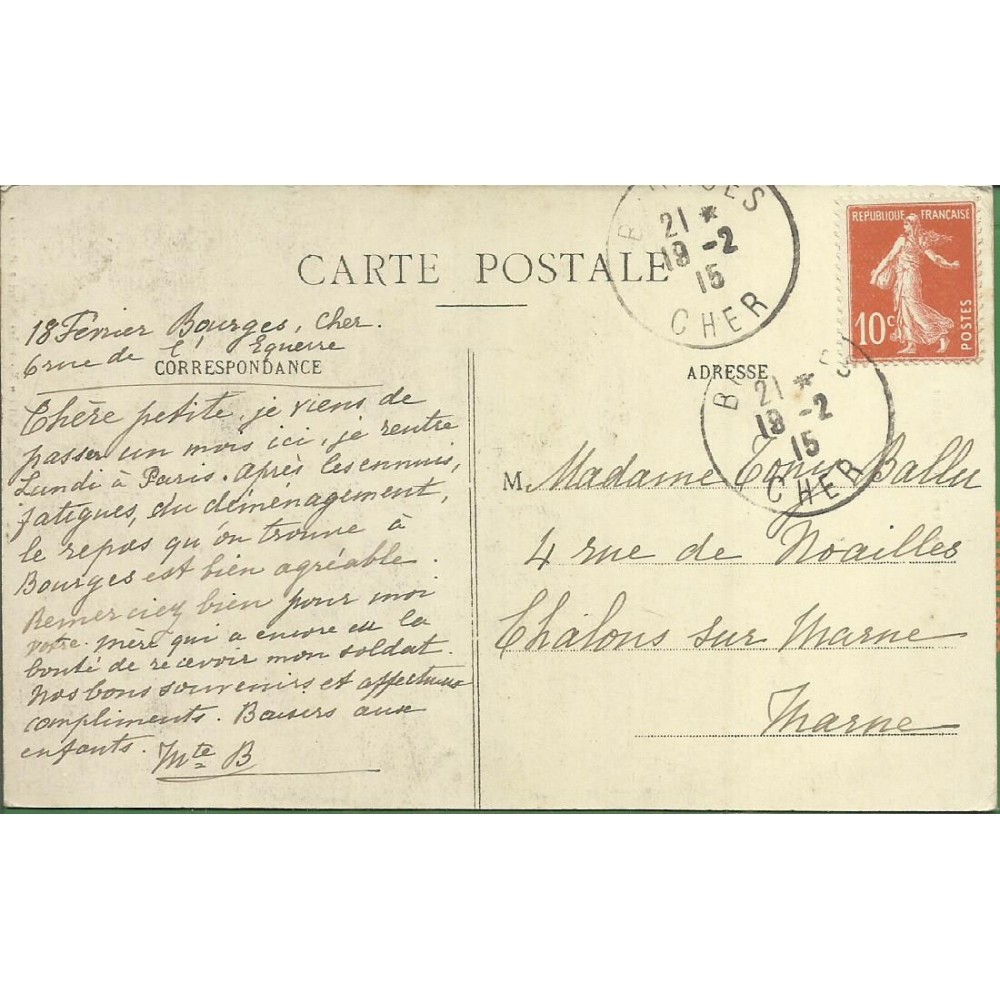 CARTE POSTALE
18 Février Bourges, Cher.
6 rue de l' Equerre
CORRESPONDANCE
Chère petite, je viens de
passer un mois ici, je rentre
Lundi à Paris. après les ennuis,
fatigues, du déménagement,
le repos qu'on trouve à
Bourges est bien agréable.
Remerciez bien pour moi
votre mère qui a encore eu la
bonté de recevoir mon soldat.
Nos bons souvenirs et affectueux
compliments. Baisers aux
enfants. Mte B
BOURGES
21 *
19 -2
15
CHER
REPUBLIQUE FRANÇAISE
10c
POSTES
ADRESSE
BOURGES
21 *
19 -2
15
CHER
M. Madame Tony Ballu
4 rue de Noailles
Châlons sur Marne
Marne